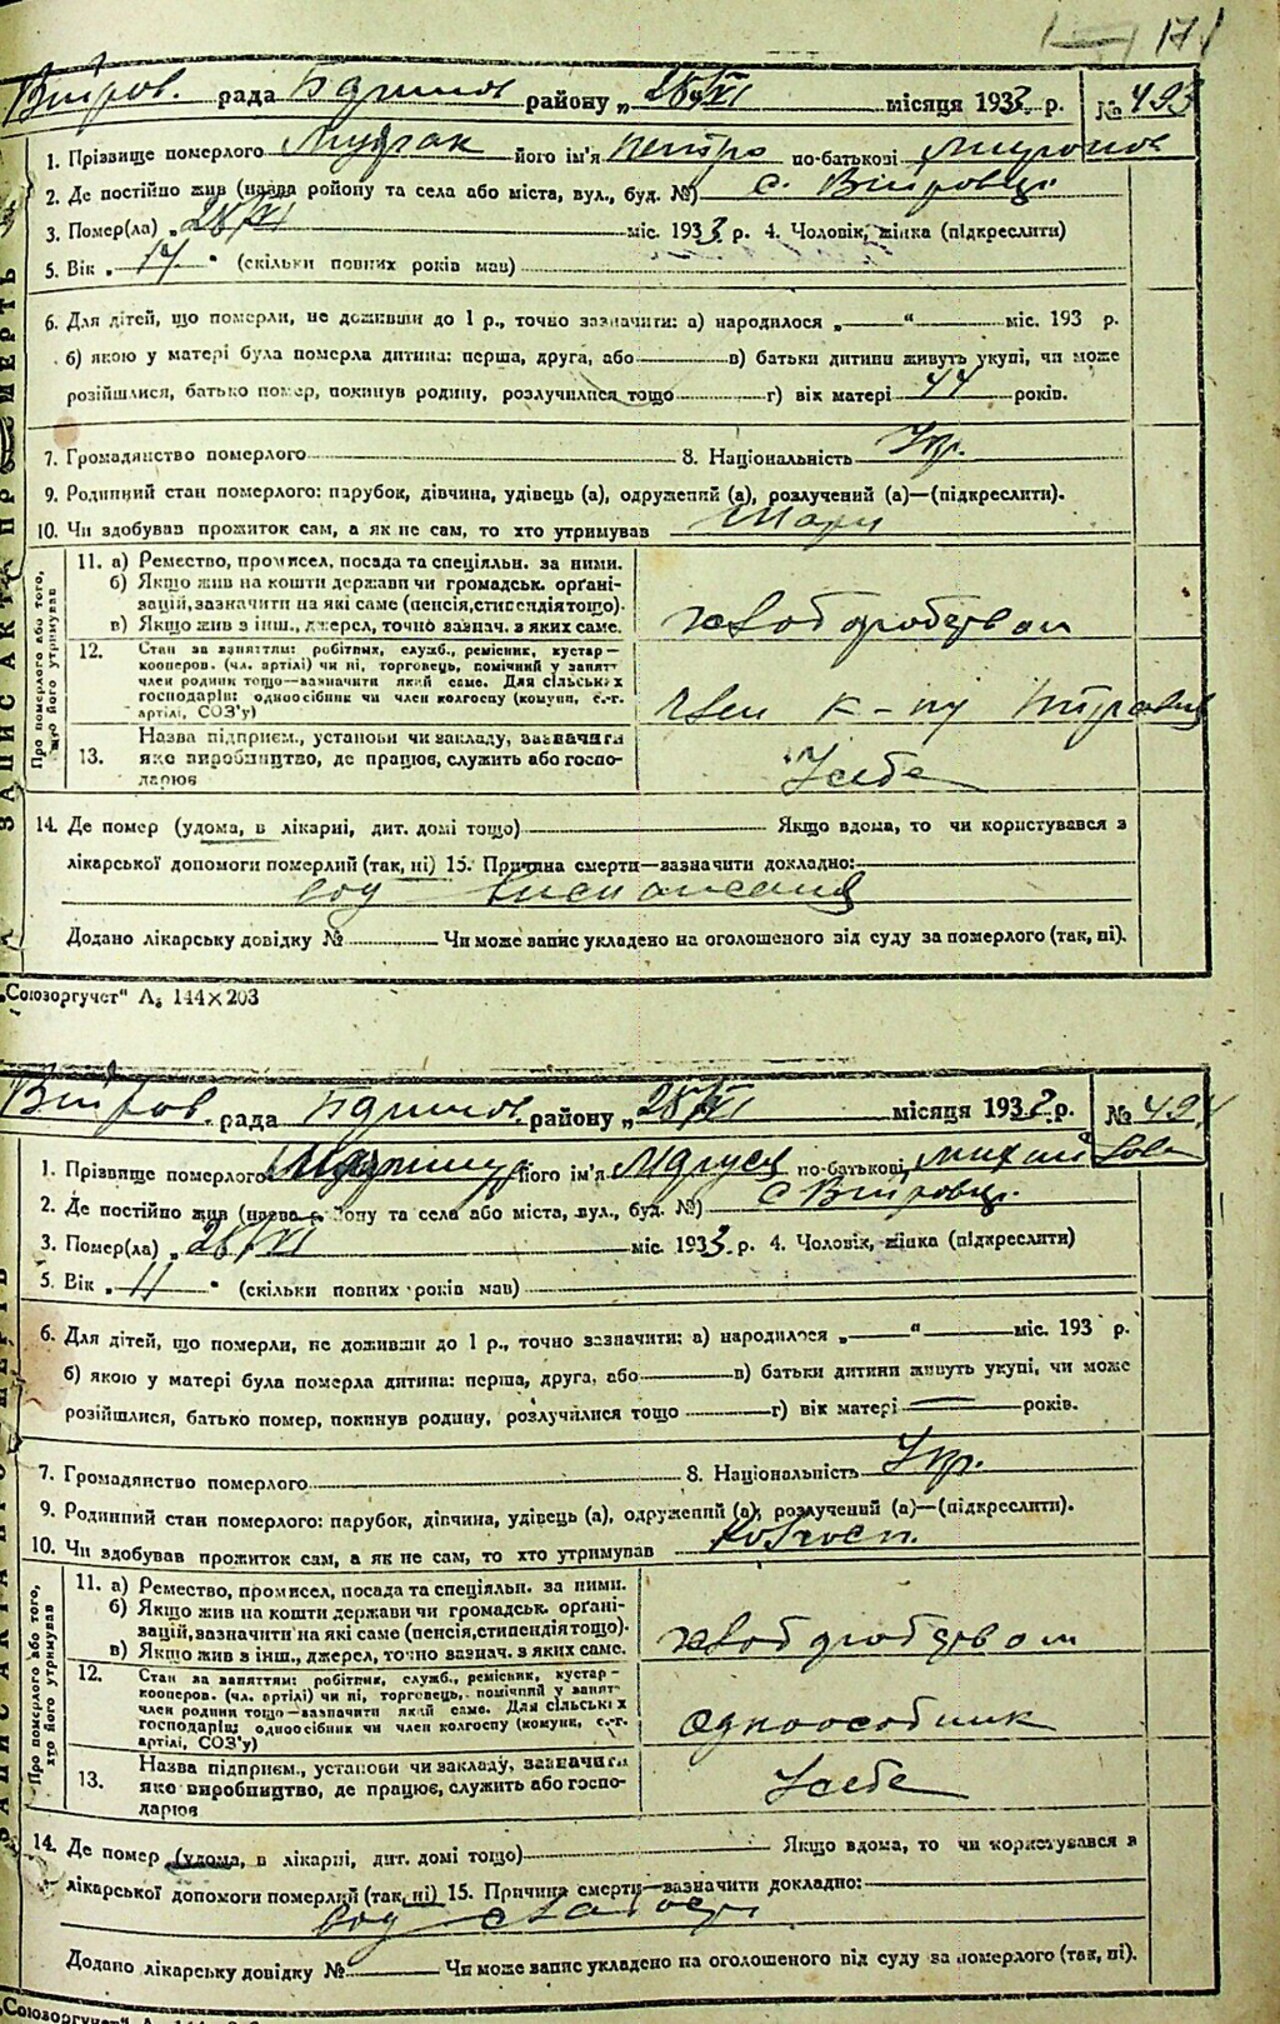 171
рада району „28/XI місяця 1933 р. № 493
1. Прізвище померлого його ім'я Петро по-батькові Миронов
2. Де постійно жив (назва ройону та села або міста, вул., буд. №) с.
3. Помер(ла) „28/XI міс. 1933 р. 4. Чоловік, жінка (підкреслити)
5. Вік „ 17 " (скільки повних років мав)
6. Для дітей, що померли, не доживши до 1 р., точно зазначити: а) народилося „—“ — міс. 193 р.
б) якою у матері була померла дитина: перша, друга, або — в) батьки дитини живуть укупі, чи може
розійшлися, батько помер, покинув родину, розлучилися тощо — г) вік матері 44 років.
7. Громадянство померлого 8. Національність Укр.
9. Родинний стан померлого: парубок, дівчина, удівець (а), одружений (а), розлучений (а)—(підкреслити).
10. Чи здобував прожиток сам, а як не сам, то хто утримував
Про померлого або того, що його утримував
11. а) Ремество, промисел, посада та спеціяльн. за ними.
б) Якщо жив на кошти держави чи громадськ. органі-
зацій, зазначити на які саме (пенсія, стипендія тощо).
в) Якщо жив з інш., джерел, точно зазнач. з яких саме.
хлебороботвом
12. Стан за заняттям: робітник, служб., ремісник, кустар—
кооперов. (чл. артілі) чи ні, торговець, помічний у занят-
член родини тощо—зазначити який саме. Для сільських
господарів: одноосібник чи член колгоспу (комуни, с.-г.
артілі, СОЗ'у)
член к-пу
13. Назва підприєм., установи чи закладу, зазначити
яке виробництво, де працює, служить або госпо-
дарює
У себе
14. Де помер (удома, в лікарні, дит. домі тощо) Якщо вдома, то чи користувався з
лікарської допомоги померлий (так, ні) 15. Причина смерти—зазначити докладно:
од
Додано лікарську довідку № Чи може запис укладено на оголошеного від суду за померлого (так, ні).
„Союзоргучет“ А₆ 144×203
рада району „28/XI місяця 1933 р. № 494
1. Прізвище померлого його ім'я по-батькові Михайлова
2. Де постійно жив (назва району та села або міста, вул., буд. №) с
3. Помер(ла) „28/XI міс. 1933 р. 4. Чоловік, жінка (підкреслити)
5. Вік „ 11 " (скільки повних років мав)
6. Для дітей, що померли, не доживши до 1 р., точно зазначити: а) народилося „—“ — міс. 193 р.
б) якою у матері була померла дитина: перша, друга, або — в) батьки дитини живуть укупі, чи може
розійшлися, батько помер, покинув родину, розлучилися тощо — г) вік матері — років.
7. Громадянство померлого 8. Національність Укр.
9. Родинний стан померлого: парубок, дівчина, удівець (а), одружений (а), розлучений (а)—(підкреслити).
10. Чи здобував прожиток сам, а як не сам, то хто утримував
Про померлого або того, хто його утримував
11. а) Ремество, промисел, посада та спеціяльн. за ними.
б) Якщо жив на кошти держави чи громадськ. органі-
зацій, зазначити на які саме (пенсія, стипендія тощо).
в) Якщо жив з інш., джерел, точно зазнач. з яких саме.
хлебороботвом
12. Стан за заняттям: робітник, служб., ремісник, кустар—
кооперов. (чл. артілі) чи ні, торговець, помічний у занят-
член родини тощо—зазначити який саме. Для сільських
господарів: одноосібник чи член колгоспу (комуни, с.-г.
артілі, СОЗ'у)
одноособник
13. Назва підприєм., установи чи закладу, зазначити
яке виробництво, де працює, служить або госпо-
дарює
У себе
14. Де помер (удома, в лікарні, дит. домі тощо) Якщо вдома, то чи користувався з
лікарської допомоги померлий (так, ні) 15. Причина смерти—зазначити докладно:
од слабости
Додано лікарську довідку № Чи може запис укладено на оголошеного від суду за померлого (так, ні).